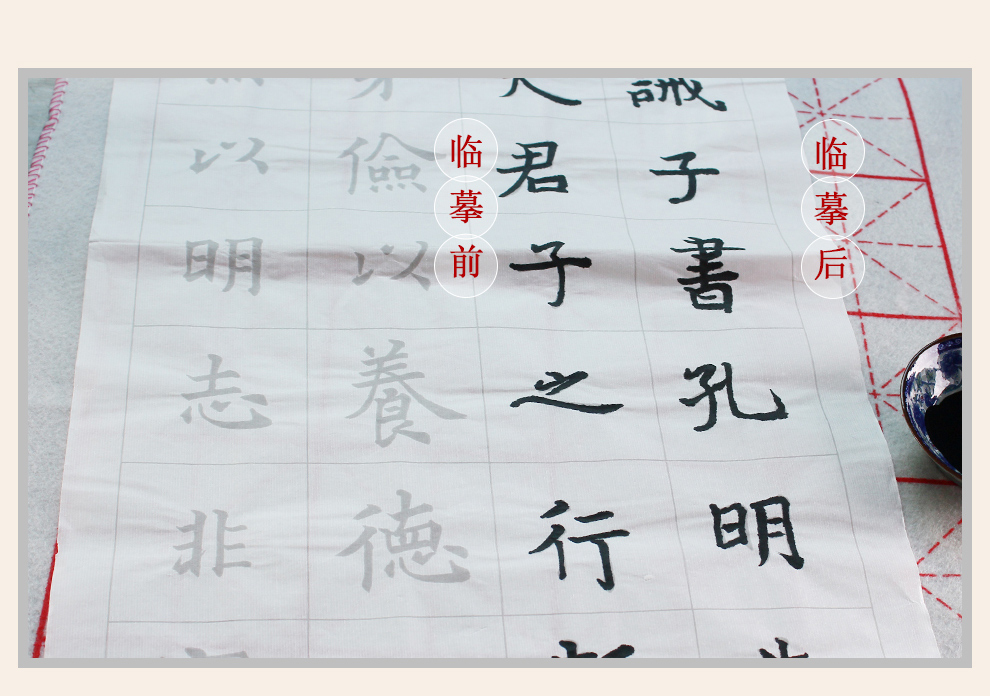 誡子書孔明
君子之行
儉以養德
以明志非
临摹前
临摹后